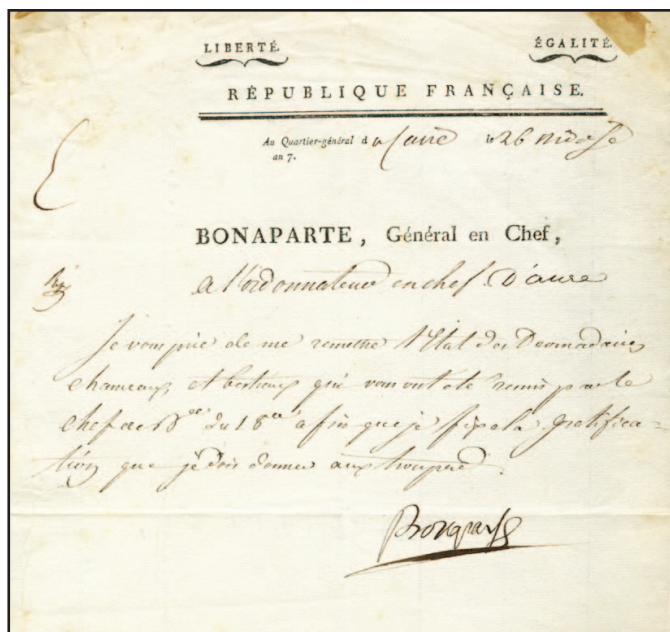 LIBERTÉ. ÉGALITÉ.
RÉPUBLIQUE FRANÇAISE.
Au Quartier-général d u Caire le 26 nivose
an 7.
BONAPARTE, Général en Chef,
a l'ordonnateur en chef D'aure
Je vous prie de me remettre l'Etat des Dromadaires
chameaux, et bestiaux qui vous ont été remis par le
chef de du 18 afin que je fixe la gratifica=
tion que je dois donner aux troupes.
Bonaparte